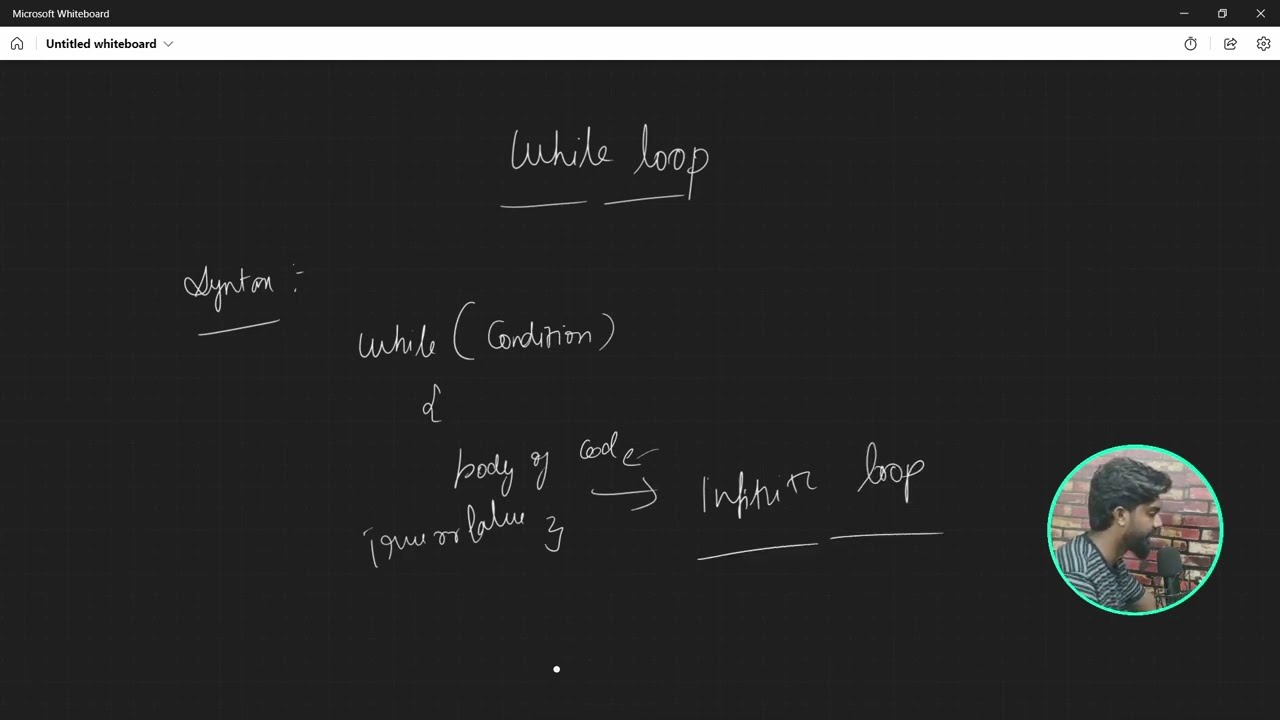 Microsoft Whiteboard
Untitled whiteboard
While loop
Syntax :
while ( Condition )
{
body of code
}
Infinite loop